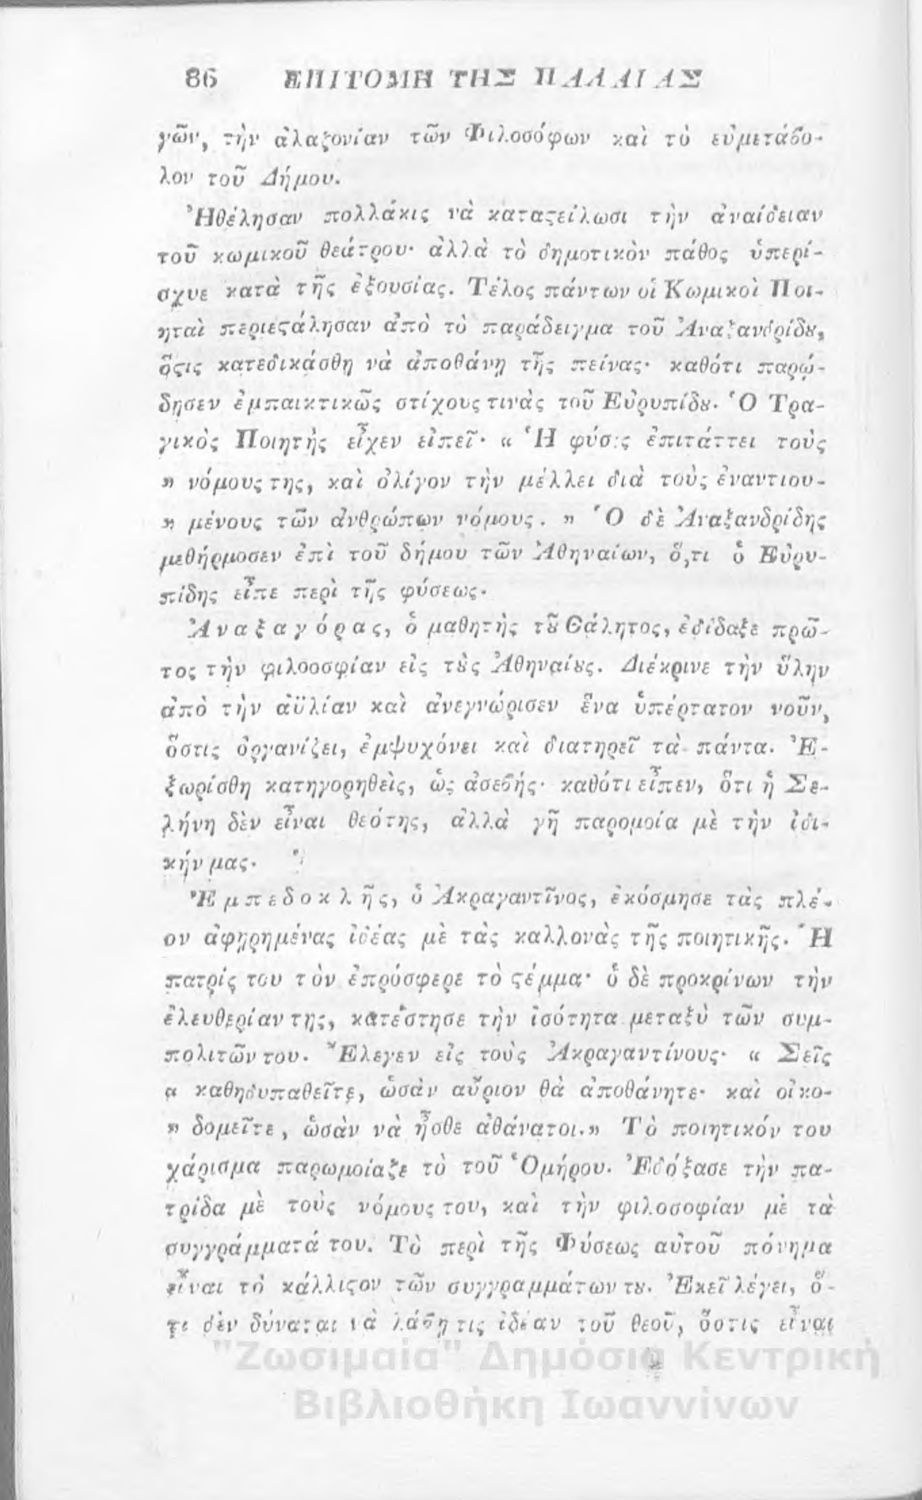 86 ΕΠΙΤΟΜΗ ΤΗΣ ΠΑΛΑΙΑΣ
γῶν, τὴν ἀλαζονίαν τῶν Φιλοσόφων καὶ τὸ εὐμετάβο-
λον τοῦ Δήμου.
Ἠθέλησαν πολλάκις νὰ καταςείλωσι τὴν ἀναίδειαν
τοῦ κωμικοῦ θεάτρου· ἀλλὰ τὸ δημοτικὸν πάθος ὑπερί-
σχυε κατὰ τῆς ἐξουσίας. Τέλος πάντων οἱ Κωμικοὶ Ποι-
ηταὶ περιεςάλησαν ἀπὸ τὸ παράδειγμα τοῦ Ἀναξανδρίδȣ,
ὅςις κατεδικάσθη νὰ ἀποθάνῃ τῆς πείνας· καθότι παρῴ-
δησεν ἐμπαικτικῶς στίχους τινὰς τοῦ Εὐρυπίδȣ. Ὁ Τρα-
γικὸς Ποιητὴς εἶχεν εἰπεῖ· « Ἡ φύσις ἐπιτάττει τοὺς
» νόμους της, καὶ ὀλίγον τὴν μέλλει διὰ τοὺς ἐναντιου-
» μένους τῶν ἀνθρώπων νόμους. » Ὁ δὲ Ἀναξανδρίδης
μεθήρμοσεν ἐπὶ τοῦ δήμου τῶν Ἀθηναίων, ὅ,τι ὁ Εὐρυ-
πίδης εἶπε περὶ τῆς φύσεως.
Ἀναξαγόρας, ὁ μαθητὴς τȣ͂ Θάλητος, ἐδίδαξε πρῶ-
τος τὴν φιλοσοφίαν εἰς τȣ̀ς Ἀθηναίȣς. Διέκρινε τὴν ὕλην
ἀπὸ τὴν ἀϋλίαν καὶ ἀνεγνώρισεν ἕνα ὑπέρτατον νοῦν,
ὅστις ὀργανίζει, ἐμψυχόνει καὶ διατηρεῖ τὰ πάντα. Ἐ-
ξωρίσθη κατηγορηθεὶς, ὡς ἀσεβής· καθότι εἶπεν, ὅτι ἡ Σε-
λήνη δὲν εἶναι θεότης, ἀλλὰ γῆ παρομοία μὲ τὴν ἰδι-
κήν μας.
Ἐμπεδοκλῆς, ὁ Ἀκραγαντῖνος, ἐκόσμησε τὰς πλέ-
ον ἀφῃρημένας ἰδέας μὲ τὰς καλλονὰς τῆς ποιητικῆς. Ἡ
πατρίς του τὸν ἐπρόσφερε τὸ ςέμμα· ὁ δὲ προκρίνων τὴν
ἐλευθερίαν της, κατέστησε τὴν ἰσότητα μεταξὺ τῶν συμ-
πολιτῶν του. Ἔλεγεν εἰς τοὺς Ἀκραγαντίνους· « Σεῖς
« καθηδυπαθεῖτε, ὡσὰν αὔριον θὰ ἀποθάνητε· καὶ οἰκο-
» δομεῖτε, ὡσὰν νὰ ἦσθε ἀθάνατοι.» Τὸ ποιητικόν του
χάρισμα παρωμοίαζε τὸ τοῦ Ὁμήρου. Ἐδόξασε τὴν πα-
τρίδα μὲ τοὺς νόμους του, καὶ τὴν φιλοσοφίαν μὲ τὰ
συγγράμματά του. Τὸ περὶ τῆς Φύσεως αὐτοῦ πόνημα
εἶναι τὸ κάλλιςον τῶν συγγραμμάτων τȣ. Ἐκεῖ λέγει, ὅ-
τι δὲν δύναται νὰ λάβῃ τις ἰδέαν τοῦ θεοῦ, ὅστις εἶναι
"Ζωσιμαία" Δημόσια Κεντρική
Βιβλιοθήκη Ιωαννίνων